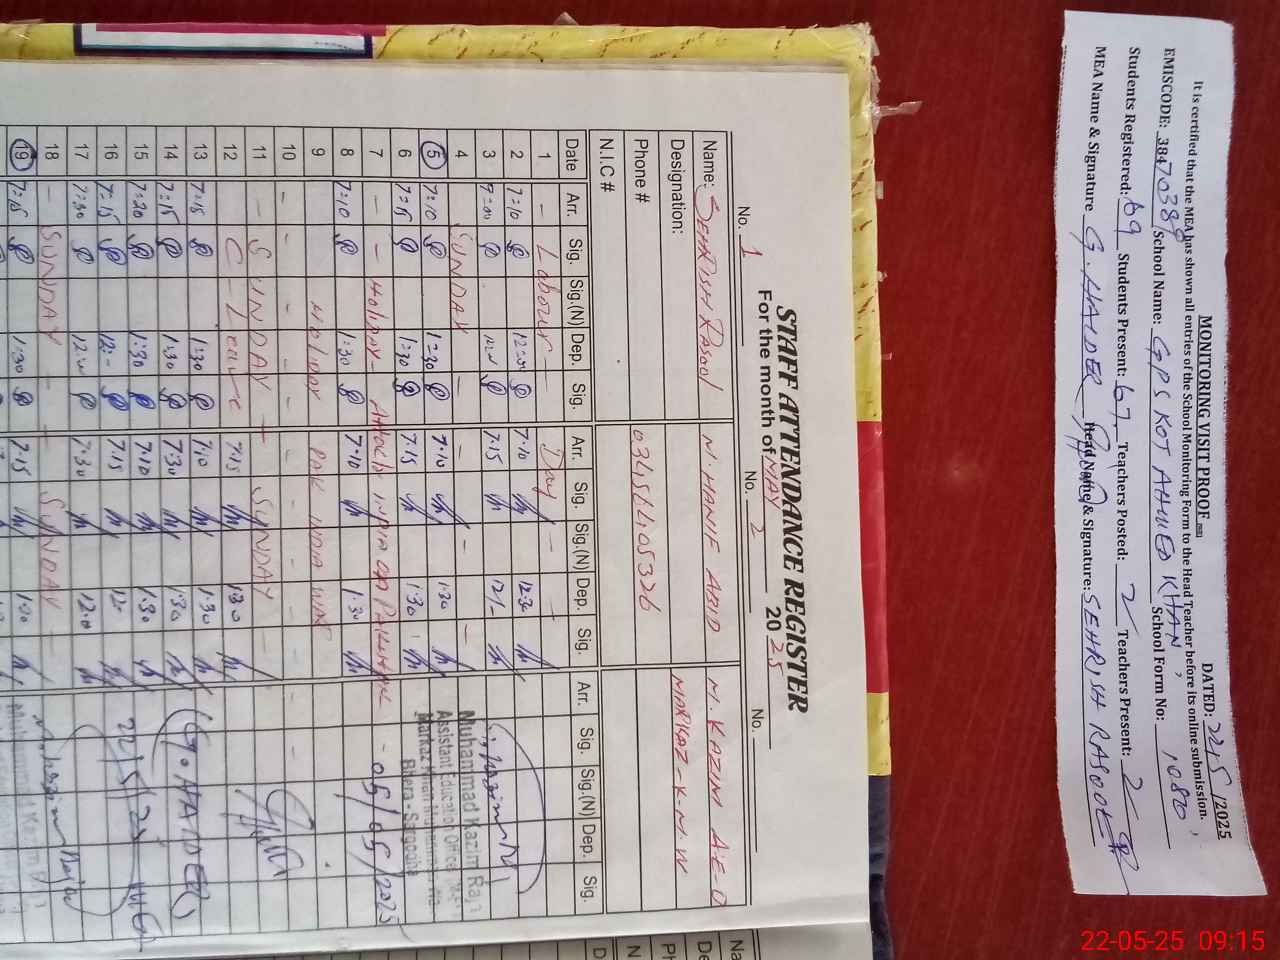 MONITORING VISIT PROOF
DATED: 22/5/2025
It is certified that the MEA has shown all entries of the School Monitoring Form to the Head Teacher before its online submission.
EMISCODE: 38470389 School Name: GPS KOT AHMED KHAN, School Form No: 1080
Students Registered: 69 Students Present: 67 Teachers Posted: 2 Teachers Present: 2
MEA Name & Signature G. HAIDER Head Name & Signature: SEHRISH RASOOL
STAFF ATTENDANCE REGISTER
For the month of MAY 2025
No. 1 No. 2 No.
Name: SEHRISH RASOOL M. HANIF ABID M. KAZIM A.E-O
Designation: MARKAZ-K-N.W
Phone # 03451405326
N.I.C #
Date Arr. Sig. Sig.(N) Dep. Sig. Arr. Sig. Sig.(N) Dep. Sig. Arr. Sig. Sig.(N) Dep. Sig.
1 - Labour - Day -
2 7:10 12:00 7.10 12.30
3 7:00 7.15 12/-
4 SUNDAY - - - -
5 7:10 1:30 7.10 1.30
6 7:15 1:30 7.15 1:30
7 - Holiday - Attack India on Pakistan - 05/05/2025
8 7:10 1:30 7.10 1:30
9 Holiday PAK INDIA WAR
10 - - - - - -
11 - SUNDAY - SUNDAY -
12 C-Leave 7.15 1.30
13 7:15 1:30 7.10 1.30
14 7:15 1:30 7.30 1.30
15 7:20 1:30 7.10 1.30
16 7:15 12:- 7.15 12:-
17 7:30 12:00 7.30 12.00
18 - SUNDAY - SUNDAY -
19 7:15 1:30 7.15
Muhammad Kazim Raja
Assistant Education Officer
Bhera - Sargodha
(G. HAIDER)
22/5/25 MEA
Na
De
Ph
N
D
22-05-25 09:15